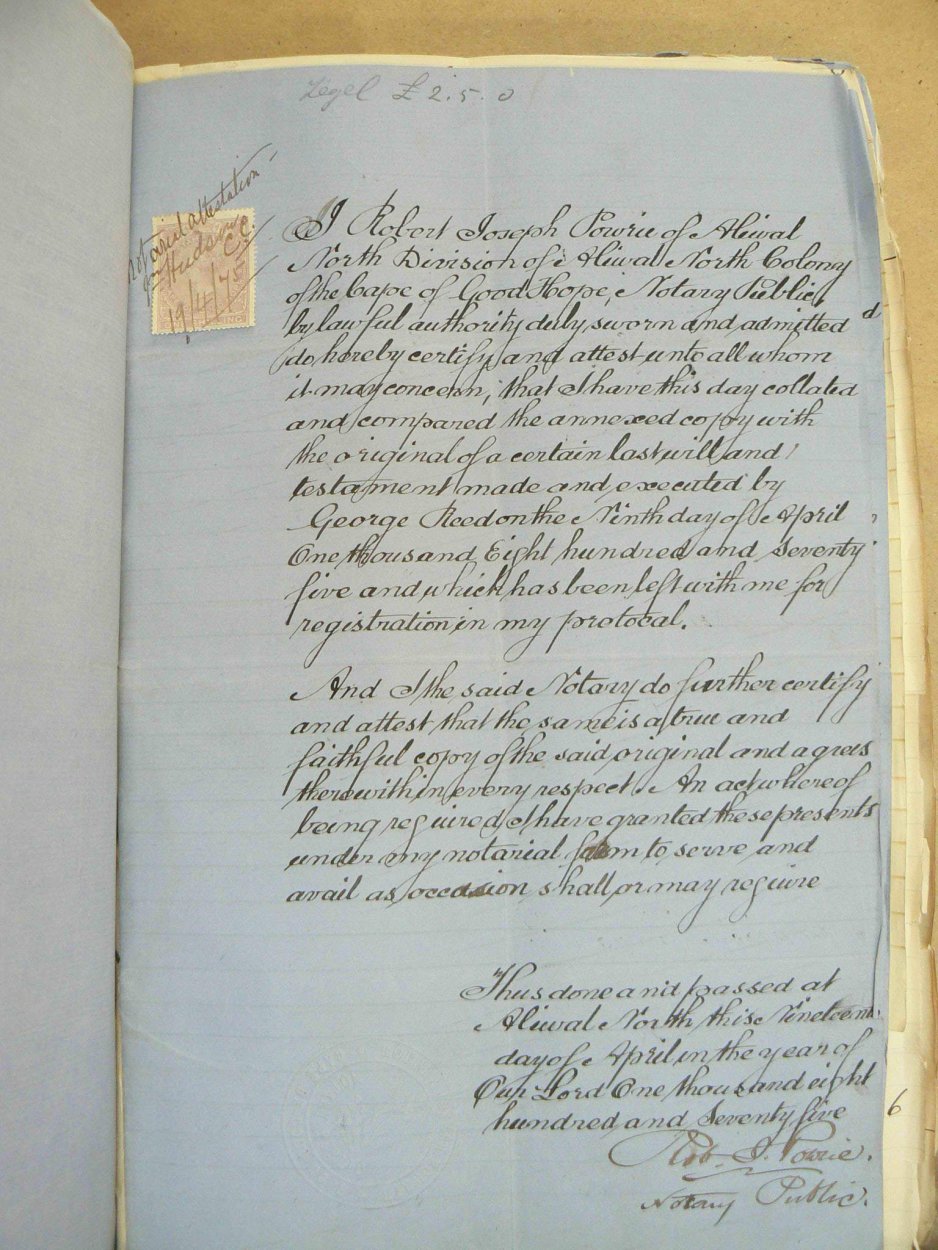 Zegel £ 2. 5. 0
Notarial attestation
Hudson
C.C.
19/4/75
I Robert Joseph Powrie of Aliwal
North Division of Aliwal North Colony
of the Cape of Good Hope, Notary Public,
by lawful authority duly sworn and admitted
do hereby certify and attest unto all whom
it may concern, that I have this day collated
and compared the annexed copy with
the original of a certain last will and
testament made and executed by
George Reed on the Ninth day of April
One thousand Eight hundred and Seventy
five and which has been left with me for
registration in my protocal.
And I the said Notary do further certify
and attest that the same is a true and
faithful copy of the said original and agrees
therewith in every respect. An act whereof
being required I have granted these presents
under my notarial form to serve and
avail as occasion shall or may require
Thus done and passed at
Aliwal North this Nineteenth
day of April in the year of
Our Lord One thousand eight
hundred and Seventy five
Rob. J. Powrie.
Notary Public.
6